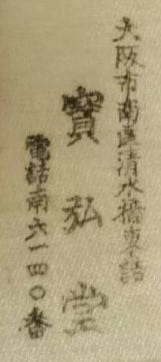 大阪市南區清水橋東詰
寶弘堂
電話南六一四〇番